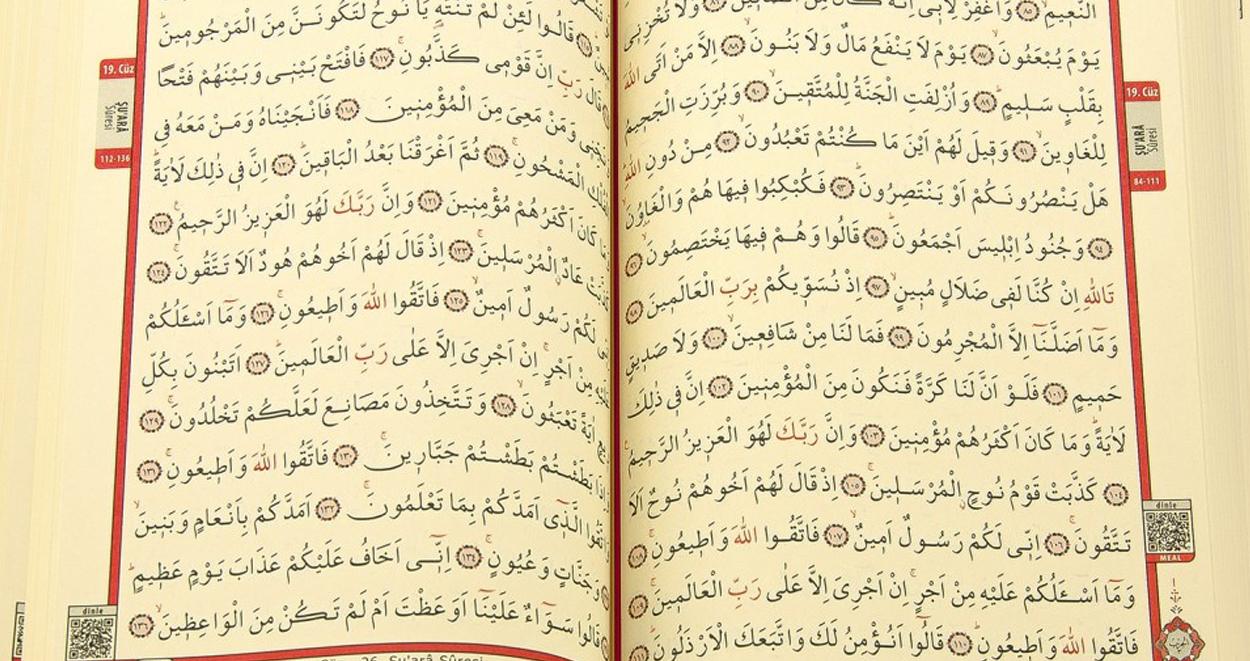 النَّعِيمِ ﴿٨٥﴾ وَاغْفِرْ لِاَبِى اِنَّهُ كَانَ مِنَ الضَّالِّينَ ﴿٨٦﴾ وَلَا تُخْزِنِى
يَوْمَ يُبْعَثُونَ ﴿٨٧﴾ يَوْمَ لَا يَنْفَعُ مَالٌ وَلَا بَنُونَ ﴿٨٨﴾ اِلَّا مَنْ اَتَى اللّٰهَ
بِقَلْبٍ سَلِيمٍ ﴿٨٩﴾ وَاُزْلِفَتِ الْجَنَّةُ لِلْمُتَّقِينَ ﴿٩٠﴾ وَبُرِّزَتِ الْجَحِيمُ
لِلْغَاوِينَ ﴿٩١﴾ وَقِيلَ لَهُمْ اَيْنَ مَا كُنْتُمْ تَعْبُدُونَ ﴿٩٢﴾ مِنْ دُونِ اللّٰهِ
هَلْ يَنْصُرُونَكُمْ اَوْ يَنْتَصِرُونَ ﴿٩٣﴾ فَكُبْكِبُوا فِيهَا هُمْ وَالْغَاوُنَ
﴿٩٤﴾ وَجُنُودُ اِبْلِيسَ اَجْمَعُونَ ﴿٩٥﴾ قَالُوا وَهُمْ فِيهَا يَخْتَصِمُونَ ﴿٩٦﴾
تَاللّٰهِ اِنْ كُنَّا لَفِى ضَلَالٍ مُبِينٍ ﴿٩٧﴾ اِذْ نُسَوِّيكُمْ بِرَبِّ الْعَالَمِينَ ﴿٩٨﴾
وَمَٓا اَضَلَّنَٓا اِلَّا الْمُجْرِمُونَ ﴿٩٩﴾ فَمَا لَنَا مِنْ شَافِعِينَ ﴿١٠٠﴾ وَلَا صَدِيقٍ
حَمِيمٍ ﴿١٠١﴾ فَلَوْ اَنَّ لَنَا كَرَّةً فَنَكُونَ مِنَ الْمُؤْمِنِينَ ﴿١٠٢﴾ اِنَّ فِى ذٰلِكَ
لَاٰيَةً وَمَا كَانَ اَكْثَرُهُمْ مُؤْمِنِينَ ﴿١٠٣﴾ وَاِنَّ رَبَّكَ لَهُوَ الْعَزِيزُ الرَّحِيمُ
﴿١٠٤﴾ كَذَّبَتْ قَوْمُ نُوحٍ الْمُرْسَلِينَ ﴿١٠٥﴾ اِذْ قَالَ لَهُمْ اَخُوهُمْ نُوحٌ اَلَا
تَتَّقُونَ ﴿١٠٦﴾ اِنِّى لَكُمْ رَسُولٌ اَمِينٌ ﴿١٠٧﴾ فَاتَّقُوا اللّٰهَ وَاَطِيعُونِ ﴿١٠٨﴾
وَمَٓا اَسْـَٔلُكُمْ عَلَيْهِ مِنْ اَجْرٍ اِنْ اَجْرِىَ اِلَّا عَلٰى رَبِّ الْعَالَمِينَ ﴿١٠٩﴾
فَاتَّقُوا اللّٰهَ وَاَطِيعُونِ ﴿١١٠﴾ قَالُٓوا اَنُؤْمِنُ لَكَ وَاتَّبَعَكَ الْاَرْذَلُونَ ﴿١١١﴾
19. Cüz
ŞU'ARÂ
Sûresi
84-111
dinle
MEAL
قَالُوا لَئِنْ لَمْ تَنْتَهِ يَا نُوحُ لَتَكُونَنَّ مِنَ الْمَرْجُومِينَ
قَالَ رَبِّ اِنَّ قَوْمِى كَذَّبُونِ ﴿١١٧﴾ فَافْتَحْ بَيْنِى وَبَيْنَهُمْ فَتْحًا
وَنَجِّنِى وَمَنْ مَعِىَ مِنَ الْمُؤْمِنِينَ ﴿١١٨﴾ فَاَنْجَيْنَاهُ وَمَنْ مَعَهُ فِى
الْفُلْكِ الْمَشْحُونِ ﴿١١٩﴾ ثُمَّ اَغْرَقْنَا بَعْدُ الْبَاقِينَ ﴿١٢٠﴾ اِنَّ فِى ذٰلِكَ لَاٰيَةً
وَمَا كَانَ اَكْثَرُهُمْ مُؤْمِنِينَ ﴿١٢١﴾ وَاِنَّ رَبَّكَ لَهُوَ الْعَزِيزُ الرَّحِيمُ ﴿١٢٢﴾
كَذَّبَتْ عَادٌ الْمُرْسَلِينَ ﴿١٢٣﴾ اِذْ قَالَ لَهُمْ اَخُوهُمْ هُودٌ اَلَا تَتَّقُونَ ﴿١٢٤﴾
اِنِّى لَكُمْ رَسُولٌ اَمِينٌ ﴿١٢٥﴾ فَاتَّقُوا اللّٰهَ وَاَطِيعُونِ ﴿١٢٦﴾ وَمَٓا اَسْـَٔلُكُمْ
عَلَيْهِ مِنْ اَجْرٍ اِنْ اَجْرِىَ اِلَّا عَلٰى رَبِّ الْعَالَمِينَ ﴿١٢٧﴾ اَتَبْنُونَ بِكُلِّ
رِيعٍ اٰيَةً تَعْبَثُونَ ﴿١٢٨﴾ وَتَتَّخِذُونَ مَصَانِعَ لَعَلَّكُمْ تَخْلُدُونَ ﴿١٢٩﴾
وَاِذَا بَطَشْتُمْ بَطَشْتُمْ جَبَّارِينَ ﴿١٣٠﴾ فَاتَّقُوا اللّٰهَ وَاَطِيعُونِ ﴿١٣١﴾
وَاتَّقُوا الَّذِٓى اَمَدَّكُمْ بِمَا تَعْلَمُونَ ﴿١٣٢﴾ اَمَدَّكُمْ بِاَنْعَامٍ وَبَنِينَ
وَجَنَّاتٍ وَعُيُونٍ ﴿١٣٤﴾ اِنِّٓى اَخَافُ عَلَيْكُمْ عَذَابَ يَوْمٍ عَظِيمٍ
قَالُوا سَوَٓاءٌ عَلَيْنَٓا اَوَعَظْتَ اَمْ لَمْ تَكُنْ مِنَ الْوَاعِظِينَ ﴿١٣٦﴾
19. Cüz
ŞU'ARÂ
Sûresi
112-136
dinle
26. Şu'arâ Sûresi